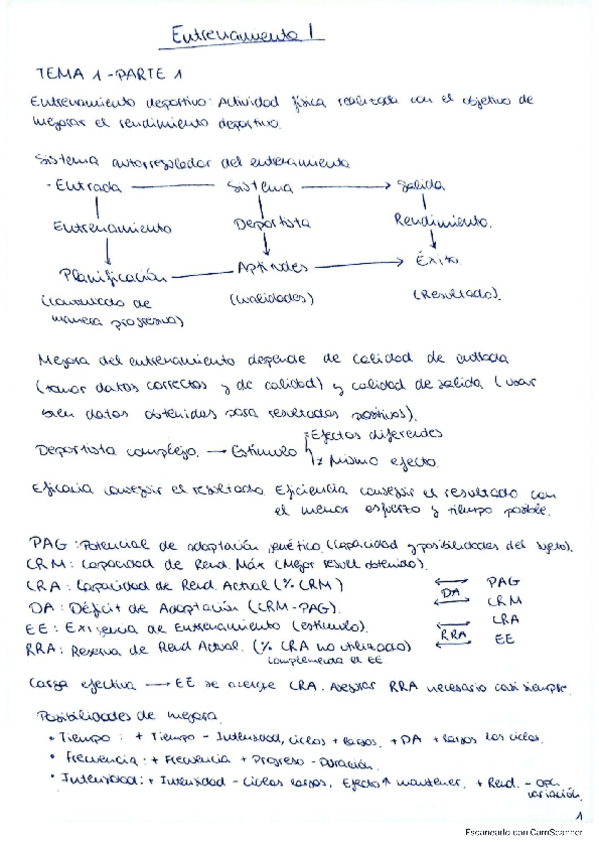 Entrenamiento 1
TEMA 1 - PARTE 1
Entrenamiento deportivo: Actividad física realizada con el objetivo de
mejorar el rendimiento deportivo.
Sistema autorregulador del entrenamiento
- Entrada → Sistema → Salida
Entrenamiento Deportista Rendimiento.
Planificación → Aptitudes → Éxito
(construido de (Cualidades) (Resultado).
manera progresiva)
Mejora del entrenamiento depende de calidad de entrada
(tomar datos correctos y de calidad) y calidad de salida (usar
bien datos obtenidos para resultados positivos).
= Efectos diferentes
Deportista complejo. → Estímulo
≠ Mismo efecto.
Eficacia conseguir el resultado. Eficiencia conseguir el resultado con
el menor esfuerzo y tiempo posible.
PAG: Potencial de adaptación genético. (Capacidad y posibilidades del sujeto).
CRM: Capacidad de Rend. Máx (Mejor result. obtenido).
CRA: Capacidad de Rend. Actual (% CRM) PAG
DA: Déficit de Adaptación (CRM-PAG). DA CRM
EE: Exigencia de Entrenamiento (estímulo). CRA
RRA: Reserva de Rend Actual. (% CRA no utilizado) RRA EE
complementa el EE
Carga efectiva → EE se acerque CRA. Asegurar RRA necesario casi siempre.
Posibilidades de mejora.
• Tiempo: + Tiempo - Intensidad, ciclos + largos. + DA + largos los ciclos.
• Frecuencia: + Frecuencia + Progreso - Duración.
• Intensidad: + Intensidad - Ciclos largos. Efecto ↑ mantener. + Rend. -
variación.
1
Escaneado con CamScanner